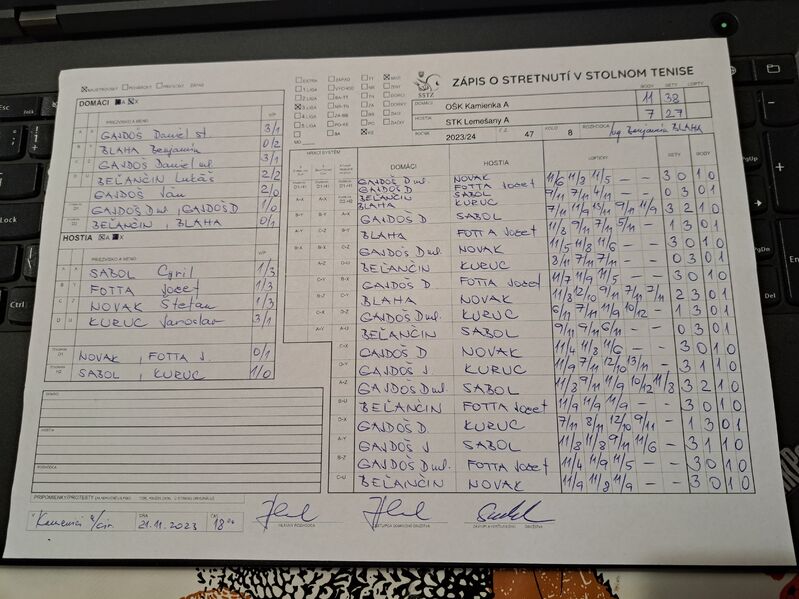 ZÁPIS O STRETNUTÍ V STOLNOM TENISE
SSTZ
DOMÁCI OŠK Kamienka A 11 38
HOSTIA STK Lemešany A 7 27
ROČNÍK 2023/24 47 KOLO 8 ROZHODCA Ing. Benjamín BLAHA
BODY SETY LOPTY
DOMÁCI A X
PRIEZVISKO A MENO V/P
GAJDOŠ Daniel st. 3/1
BLAHA Benjamín 0/2
GAJDOŠ Daniel ml. 3/1
BEĽANČIN Lukáš 2/2
GAJDOŠ Ján 2/0
GAJDOŠ D ml., GAJDOŠ D 1/0
BEĽANČIN, BLAHA 0/1
HOSTIA A X
PRIEZVISKO A MENO V/P
SABOL Cyril 1/3
FOTTA Jozef 1/3
NOVAK Štefan 1/3
KURUC Jaroslav 3/1
NOVAK, FOTTA J. 0/1
SABOL, KURUC 1/0
HRACÍ SYSTÉM DOMÁCI HOSTIA LOPTIČKY SETY BODY
GAJDOŠ D ml. GAJDOŠ D NOVAK FOTTA Jozef 11/6 11/8 11/5 – – 3 0 1 0
BEĽANČIN BLAHA SABOL KURUC 9/11 7/11 4/11 – – 0 3 0 1
GAJDOŠ D SABOL 7/11 11/9 13/11 9/11 11/9 3 2 1 0
BLAHA FOTTA Jozef 11/8 9/11 7/11 5/11 – 1 3 0 1
GAJDOŠ D ml. NOVAK 11/5 11/8 11/6 – – 3 0 1 0
BEĽANČIN KURUC 8/11 7/11 7/11 – – 0 3 0 1
GAJDOŠ D. FOTTA Jozef 11/7 11/9 11/5 – – 3 0 1 0
BLAHA NOVAK 11/8 12/10 9/11 7/11 7/11 2 3 0 1
GAJDOŠ D ml. KURUC 6/11 7/11 11/9 10/12 – 1 3 0 1
BEĽANČIN SABOL 9/11 9/11 6/11 – – 0 3 0 1
GAJDOŠ D NOVAK 11/4 11/8 11/6 – – 3 0 1 0
GAJDOŠ J. KURUC 11/9 7/11 12/10 13/11 – 3 1 1 0
GAJDOŠ D ml. SABOL 11/8 9/11 11/9 10/12 11/8 3 2 1 0
BEĽANČIN FOTTA Jozef 11/9 11/9 11/9 – – 3 0 1 0
GAJDOŠ D. KURUC 7/11 8/11 12/10 9/11 – 1 3 0 1
GAJDOŠ J SABOL 11/8 11/8 9/11 11/6 – 3 1 1 0
GAJDOŠ D ml. FOTTA Jozef 11/4 11/9 11/5 – – 3 0 1 0
BEĽANČIN NOVAK 11/9 11/8 11/9 – – 3 0 1 0
DOMÁCI
HOSTIA
ROZHODCA
PRIPOMIENKY/PROTESTY
DŇA 21.11.2023 ČAS 18
HLAVNÝ ROZHODCA